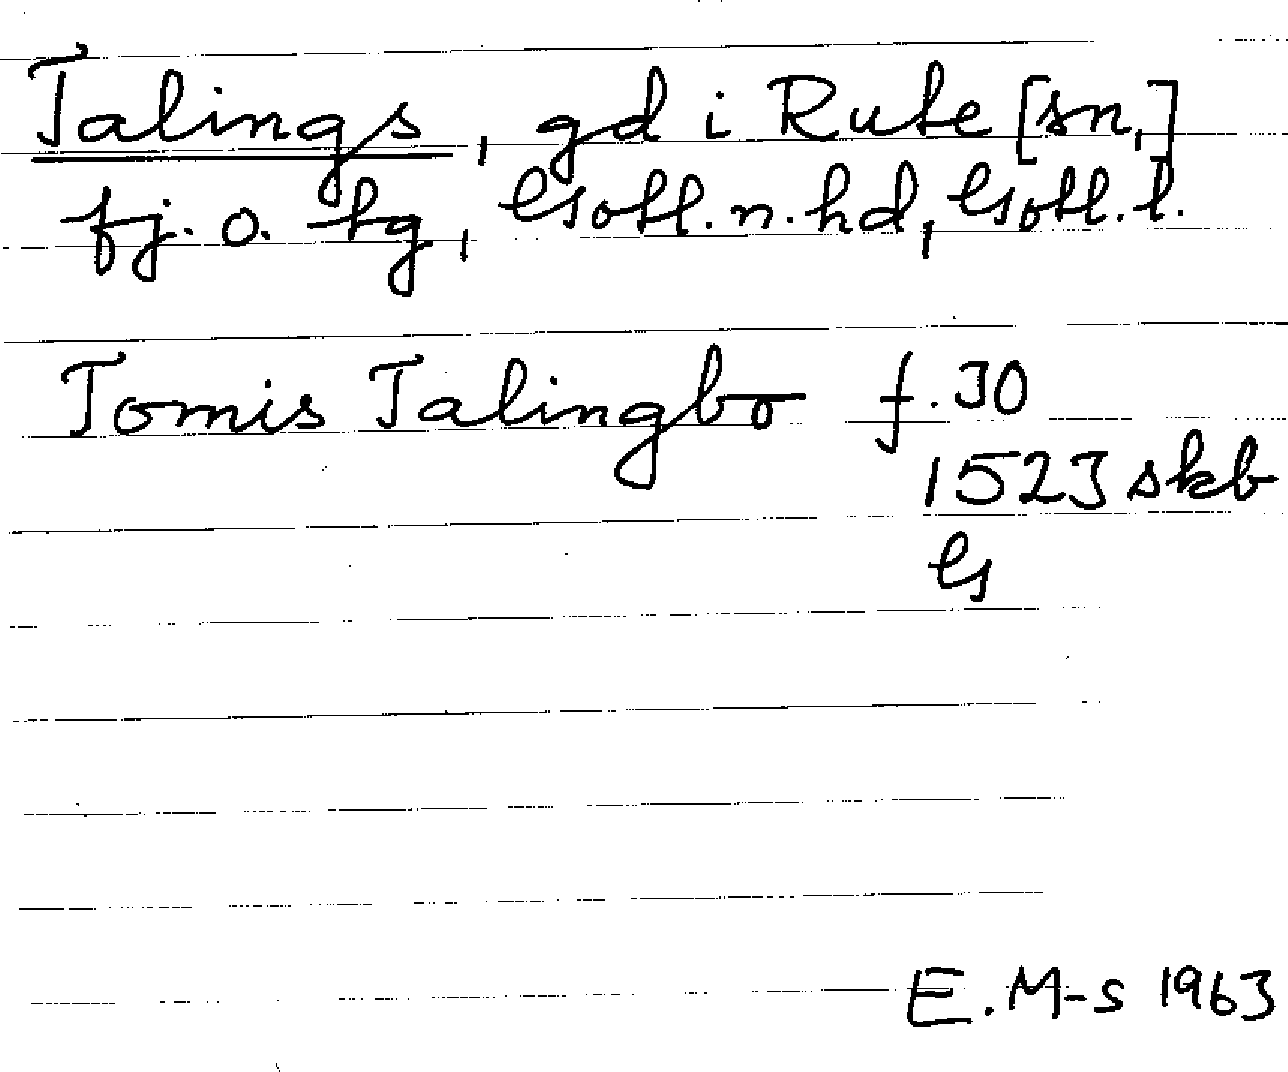 Talings, gd i Rute [sn,]
fj. o. tg, Gotl. n. hd, Gotl. l.
Tomis Talingbo f. 30
1523 skb
G
E. M-s 1963